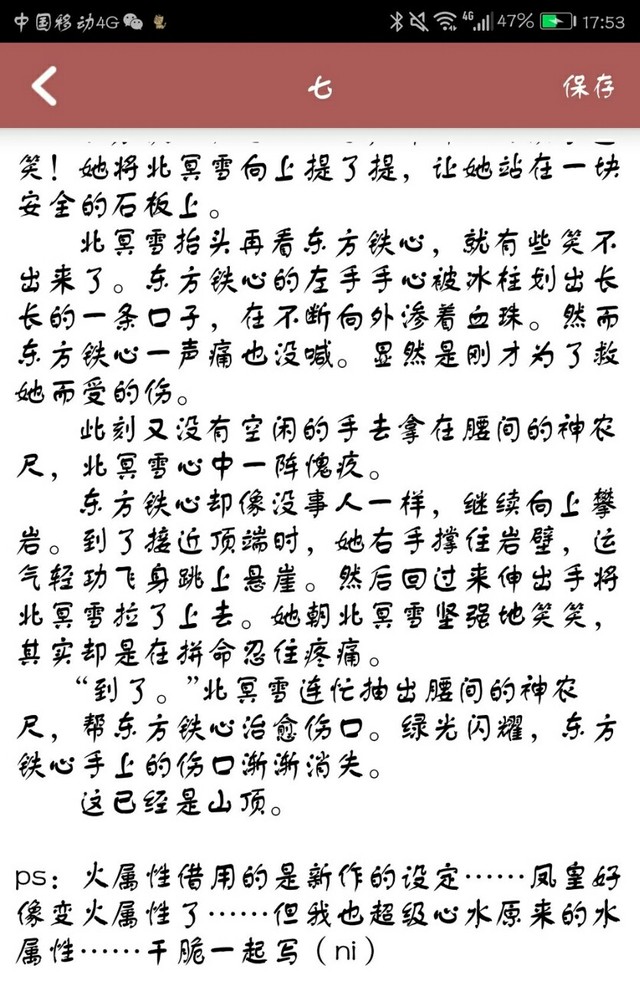 中国移动4G 4G 47% 17:53
七 保存
笑！她将北冥雪向上提了提，让她站在一块
安全的石板上。
北冥雪抬头再看东方铁心，就有些笑不
出来了。东方铁心的左手手心被冰柱划出长
长的一条口子，在不断向外渗着血珠。然而
东方铁心一声痛也没喊。显然是刚才为了救
她而受的伤。
此刻又没有空闲的手去拿在腰间的神农
尺，北冥雪心中一阵愧疚。
东方铁心却像没事人一样，继续向上攀
岩。到了接近顶端时，她右手撑住岩壁，运
气轻功飞身跳上悬崖。然后回过来伸出手将
北冥雪拉了上去。她朝北冥雪坚强地笑笑，
其实却是在拼命忍住疼痛。
“到了。”北冥雪连忙抽出腰间的神农
尺，帮东方铁心治愈伤口。绿光闪耀，东方
铁心手上的伤口渐渐消失。
这已经是山顶。
ps：火属性借用的是新作的设定……凤皇好
像变火属性了……但我也超级心水原来的水
属性……干脆一起写（ni）